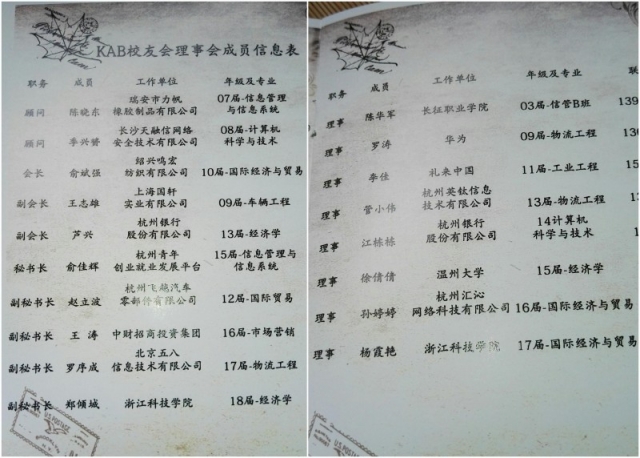 KAB校友会理事会成员信息表
职务 成员 工作单位 年级及专业
顾问 陈晓东 瑞安市力帆橡胶制品有限公司 07届-信息管理与信息系统
顾问 李兴赟 长沙天融信网络安全技术有限公司 08届-计算机科学与技术
会长 俞斌强 绍兴鸣宏纺织有限公司 10届-国际经济与贸易
副会长 王志雄 上海国轩实业有限公司 09届-车辆工程
副会长 芦兴 杭州银行股份有限公司 13届-经济学
秘书长 俞佳辉 杭州青年创业就业发展平台 15届-信息管理与信息系统
副秘书长 赵立波 杭州飞越汽车零部件有限公司 12届-国际贸易
副秘书长 王涛 中财招商投资集团 16届-市场营销
副秘书长 罗序成 北京五八信息技术有限公司 17届-物流工程
副秘书长 郑倾城 浙江科技学院 18届-经济学
职务 成员 工作单位 年级及专业 联
理事 陈华军 长征职业学院 03届-信管B班 139
理事 罗涛 华为 09届-物流工程 13
理事 李佳 礼来中国 11届-工业工程 15
理事 管小伟 杭州英钛信息技术有限公司 13届-物流工程 1
理事 江栋栋 杭州银行股份有限公司 14计算机科学与技术
理事 徐倩倩 温州大学 15届-经济学
理事 孙婷婷 杭州汇沁网络科技有限公司 16届-国际经济与贸易
理事 杨霞艳 浙江科技学院 17届-国际经济与贸易